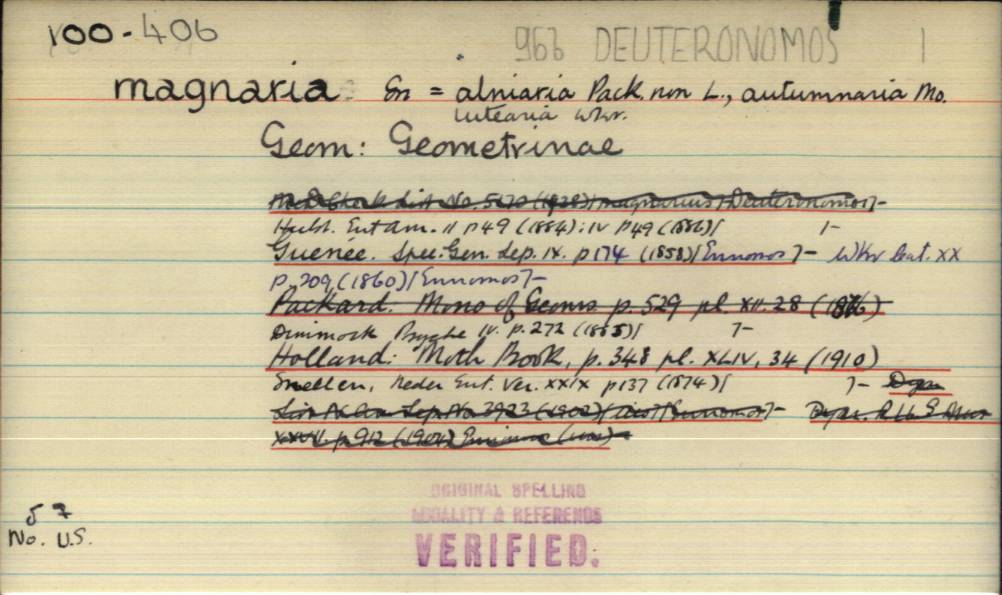 100-406
966 DEUTERONOMOS 1
magnaria Gn = alniaria Pack. non L., autumnaria Mo.
lutearia Wkr.
Geom: Geometrinae
No. 5170 (1938) magnarius/Deuteronomos]-
Hulst. Ent Am. II p 49 (1884): IV p 49 (1886)/ ]-
Guenée. Spec. Gen. Lep. IX. p 174 (1858)/Ennomos]- Wkr Cat. XX
p. 209 (1860)/Ennomos]-
Packard. Mono of Geoms p. 529 pl. XII. 28 (1876)
Dimmock Psyche IV. p. 272 (1885)/ ]-
Holland: Moth Book, p. 348 pl. XLIV, 34 (1910)
Snellen, Ent. Ver. XXIX p 137 (1874)/ ]- Dyar
Lep. No 3923 (1902) /Ennomos]- Dyar.
p. 912 (1904)
ORIGINAL SPELLING
LOCALITY & REFERENCE
VERIFIED.
No. U.S.